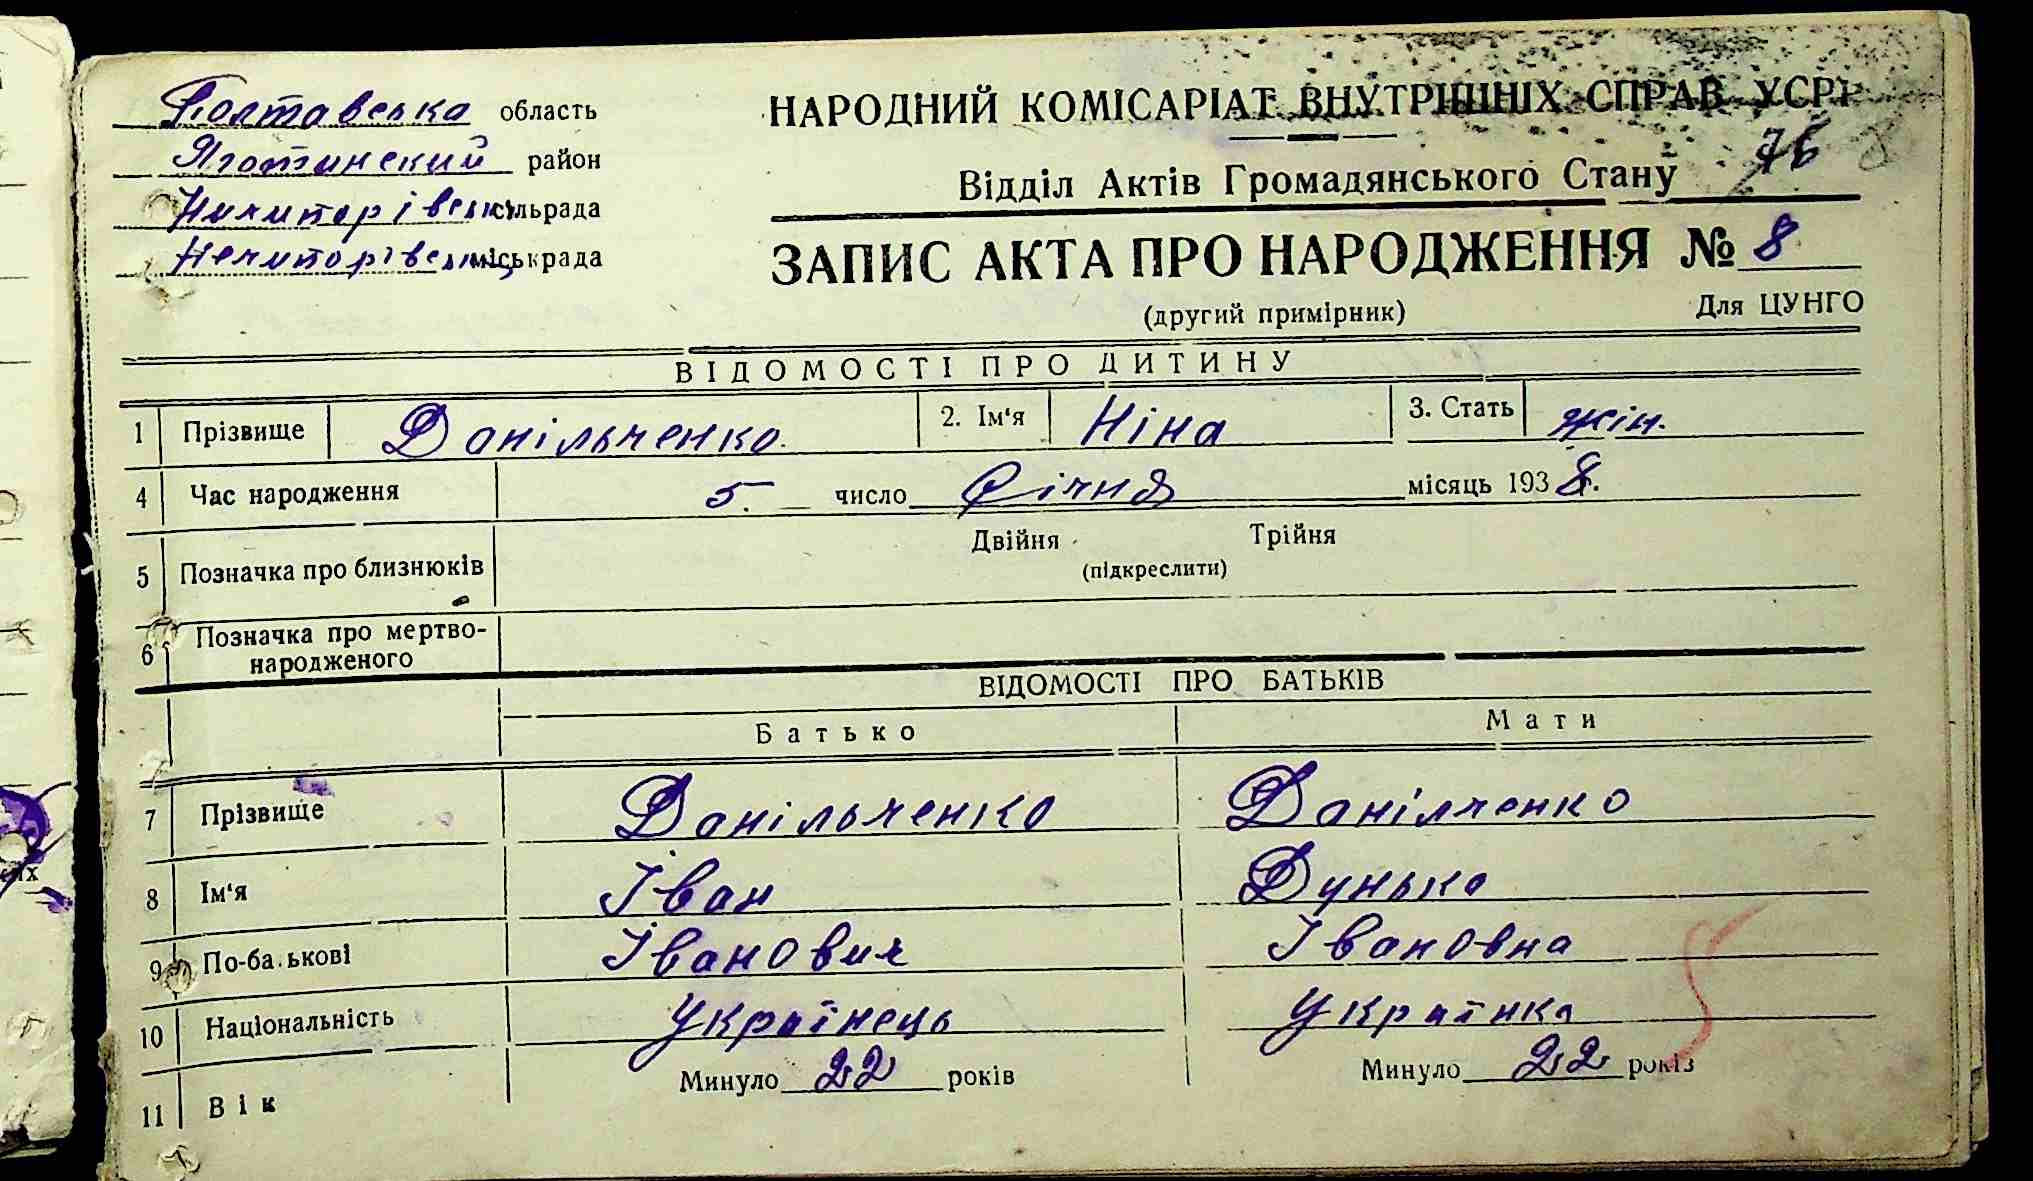 Полтавська область
НАРОДНИЙ КОМІСАРІАТ ВНУТРІШНІХ СПРАВ УСРР
Яготинский район
76
Відділ Актів Громадянського Стану
сільрада
міськрада
ЗАПИС АКТА ПРО НАРОДЖЕННЯ № 8
(другий примірник) Для ЦУНГО
ВІДОМОСТІ ПРО ДИТИНУ
1 Прізвище Данільченко 2. Ім'я Ніна 3. Стать жін.
4 Час народження 5. число Січня місяць 1938.
5 Позначка про близнюків Двійня Трійня
(підкреслити)
6 Позначка про мертво-
народженого
ВІДОМОСТІ ПРО БАТЬКІВ
Батько Мати
7 Прізвище Данільченко Данілченко
8 Ім'я Іван Дунька
9 По-ба.ькові Іванович Івановна
10 Національність Українець Українка
11 Вік Минуло 22 років Минуло 22 років